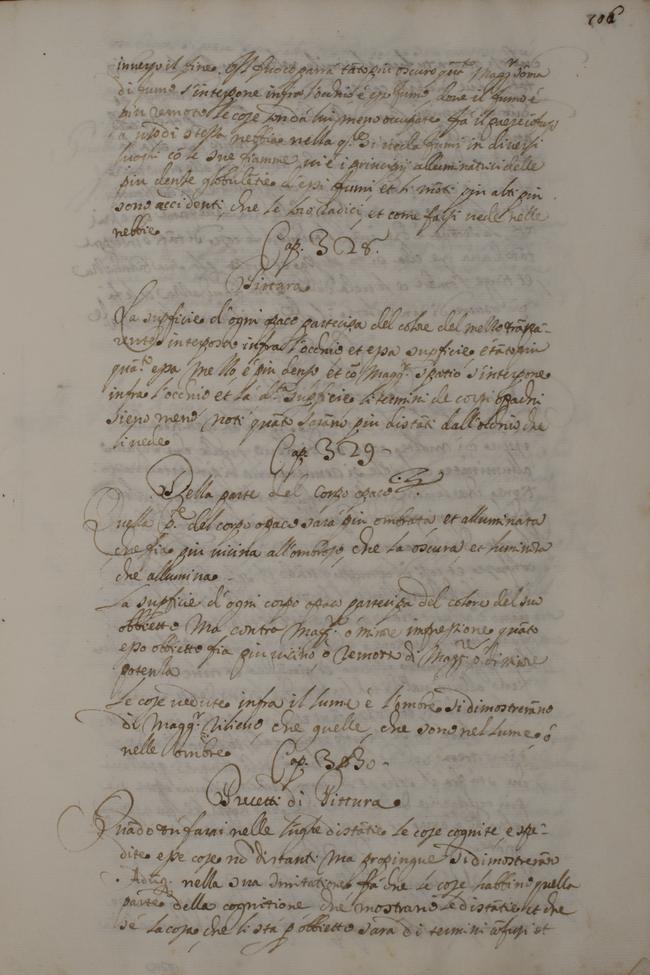 106
inverso il fine. Il fuoco parrà tãto più oscuro quãto Magg.r soma
di fumo s'interpone infra l'occhio e esso fumo, dove il fumo è
più remoto le cose sondà lui meno occupate. fà il paese confuso
a uso di spessa nebbia nella q.le si veda fumi in diversi
luoghi cõ le sue fiamme, ne i principij alluminatrici delle
più dense globulentie d'essi fumi, et li moti più alti più
sono accidenti, che le loro radici, et come fassi vede nelle
nebbie
Cap. 328.
Pittura
La supficie d'ogni opaco partecipa del colore del mello trãspa-
rente interposto infra l'occhio et essa supficie e tãto più
quã.to essa mello, è più denso et cõ Magg.r spatio s'interpone
infra l'occhio et la d.ta supficie li termini de corpi opachi
sieno meno noti quãto sarãno più distãti dall'occhio che
li vede
Cap. 329
Della parte del corpo opaco
Quella p.te del corpo opaco sarà più ombrata et alluminata
che fia più vicina all'ombroso, che la oscura, et luminoso
che allumina.
La supficie d'ogni corpo opaco partecipa del colore del suo
obbietto Ma contra Magg.r ò minore impressione quãto
esso obbietto fia più vicino, ò remoto di Magg.re ò di minore
potentia
Le cose vedute infra il lume e l'ombre si dimostrerãno
di Magg.r rilievo, che quelle, che sono nel lume, ò
nelle ombre
Cap. 330
Precetti di Pittura
Quãdo tu farai nelle lũghe distãtie le cose cognite, e spe-
dite esse cose nõ distanti Ma propingue si dimostrerãno
nella tua imitatione fà che le cose habbino quella
parte della cognitione che mostrano le distãtie et che
se la cosa, che ti stà p obbietto sarà di termini cõfusi et